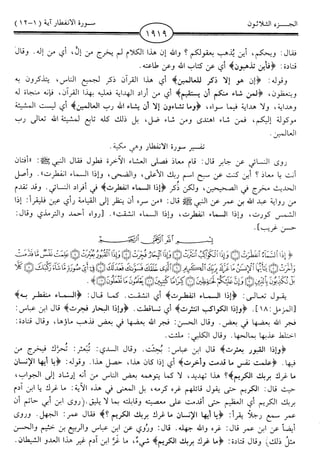 الجـزء الثـلاثـون
١٩١٩
سـورة الانفطار آية (١-١٢)
فقال: ويحكم، أين يُذهب بعقولكم؟ والله إن هذا الكلام لم يخرج من إلٍّ، أي من إله. وقال
قتادة: ﴿فأين تذهبون﴾ أي عن كتاب الله وعن طاعته.
وقوله: ﴿إن هو إلا ذكر للعالمين﴾ أي هذا القرآن ذكر لجميع الناس، يتذكرون به
ويتعظون، ﴿لمن شاء منكم أن يستقيم﴾ أي من أراد الهداية فعليه بهذا القرآن، فإنه منجاة له
وهداية، ولا هداية فيما سواه، ﴿وما تشاءون إلا أن يشاء الله رب العالمين﴾ أي ليست المشيئة
موكولة إليكم، فمن شاء اهتدى ومن شاء ضل، بل ذلك كله تابع لمشيئة الله تعالى رب
العالمين.
تفسير سورة الانفطار وهي مكية.
روى النسائي عن جابر قال: قام معاذ فصلى العشاء الآخرة فطول فقال النبي ﷺ: «أفتان
أنت يا معاذ؟ أين كنت عن سبح اسم ربك الأعلى، والضحى، وإذا السماء انفطرت». وأصل
الحديث مخرج في الصحيحين، ولكن ذكر ﴿إذا السماء انفطرت﴾ في أفراد النسائي. وقد تقدم
من رواية عبد الله بن عمر عن النبي ﷺ قال: «من سره أن ينظر إلى القيامة رأي عين فليقرأ: إذا
الشمس كورت، وإذا السماء انفطرت، وإذا السماء انشقت». [رواه أحمد والترمذي وقال:
حسن غريب].
يقـول تعـالـى: ﴿إذا السماء انفطرت﴾ أي انشقت. كمـا قـال: ﴿السماء منفطر بـه﴾
[المزمل: ١٨]. ﴿وإذا الكواكب انتثرت﴾ أي تساقطت. ﴿وإذا البحار فجرت﴾ قال ابن عباس:
فجر الله بعضها في بعض. وقال الحسن: فجر الله بعضها في بعض فذهب ماؤها، وقال قتادة:
اختلط عذبها بمالحها. وقال الكلبي: ملئت.
﴿وإذا القبور بعثرت﴾ قال ابن عباس: بُحثت. وقال السدي: تُبعثر: تُحرَّك فيخرج من
فيها. ﴿علمت نفس ما قدمت وأخرت﴾ أي إذا كان هذا، حصل هذا. وقوله: ﴿يا أيها الإنسان
ما غرك بربك الكريم؟﴾ هذا تهديد، لا كما يتوهمه بعض الناس من أنه إرشاد إلى الجواب،
حيث قال: الكريم حتى يقول قائلهم غره كرمه، بل المعنى في هذه الآية: ما غرك يا ابن آدم
بربك الكريم أي العظيم حتى أقدمت على معصيته وقابلته بما لا يليق. (روى ابن أبي حاتم أن
عمر سمع رجلاً يقرأ: ﴿يا أيها الإنسان ما غرك بربك الكريم﴾؟ فقال عمر: الجهل. وروى
أيضاً عن ابن عمر قال: غره والله جهله. قال: ورُوي عن ابن عباس والربيع بن خثيم والحسن
مثل ذلك) وقال قتادة: ﴿ما غرك بربك الكريم﴾ شيءٌ، ما غرّ ابن آدم غير هذا العدو الشيطان.